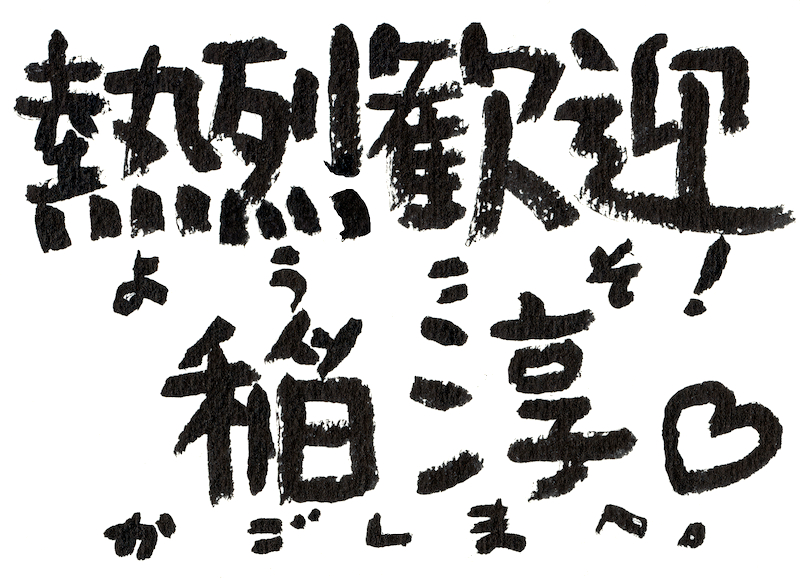 熱烈歓迎
ようこそ!
稲淳♡
かごしまへ。